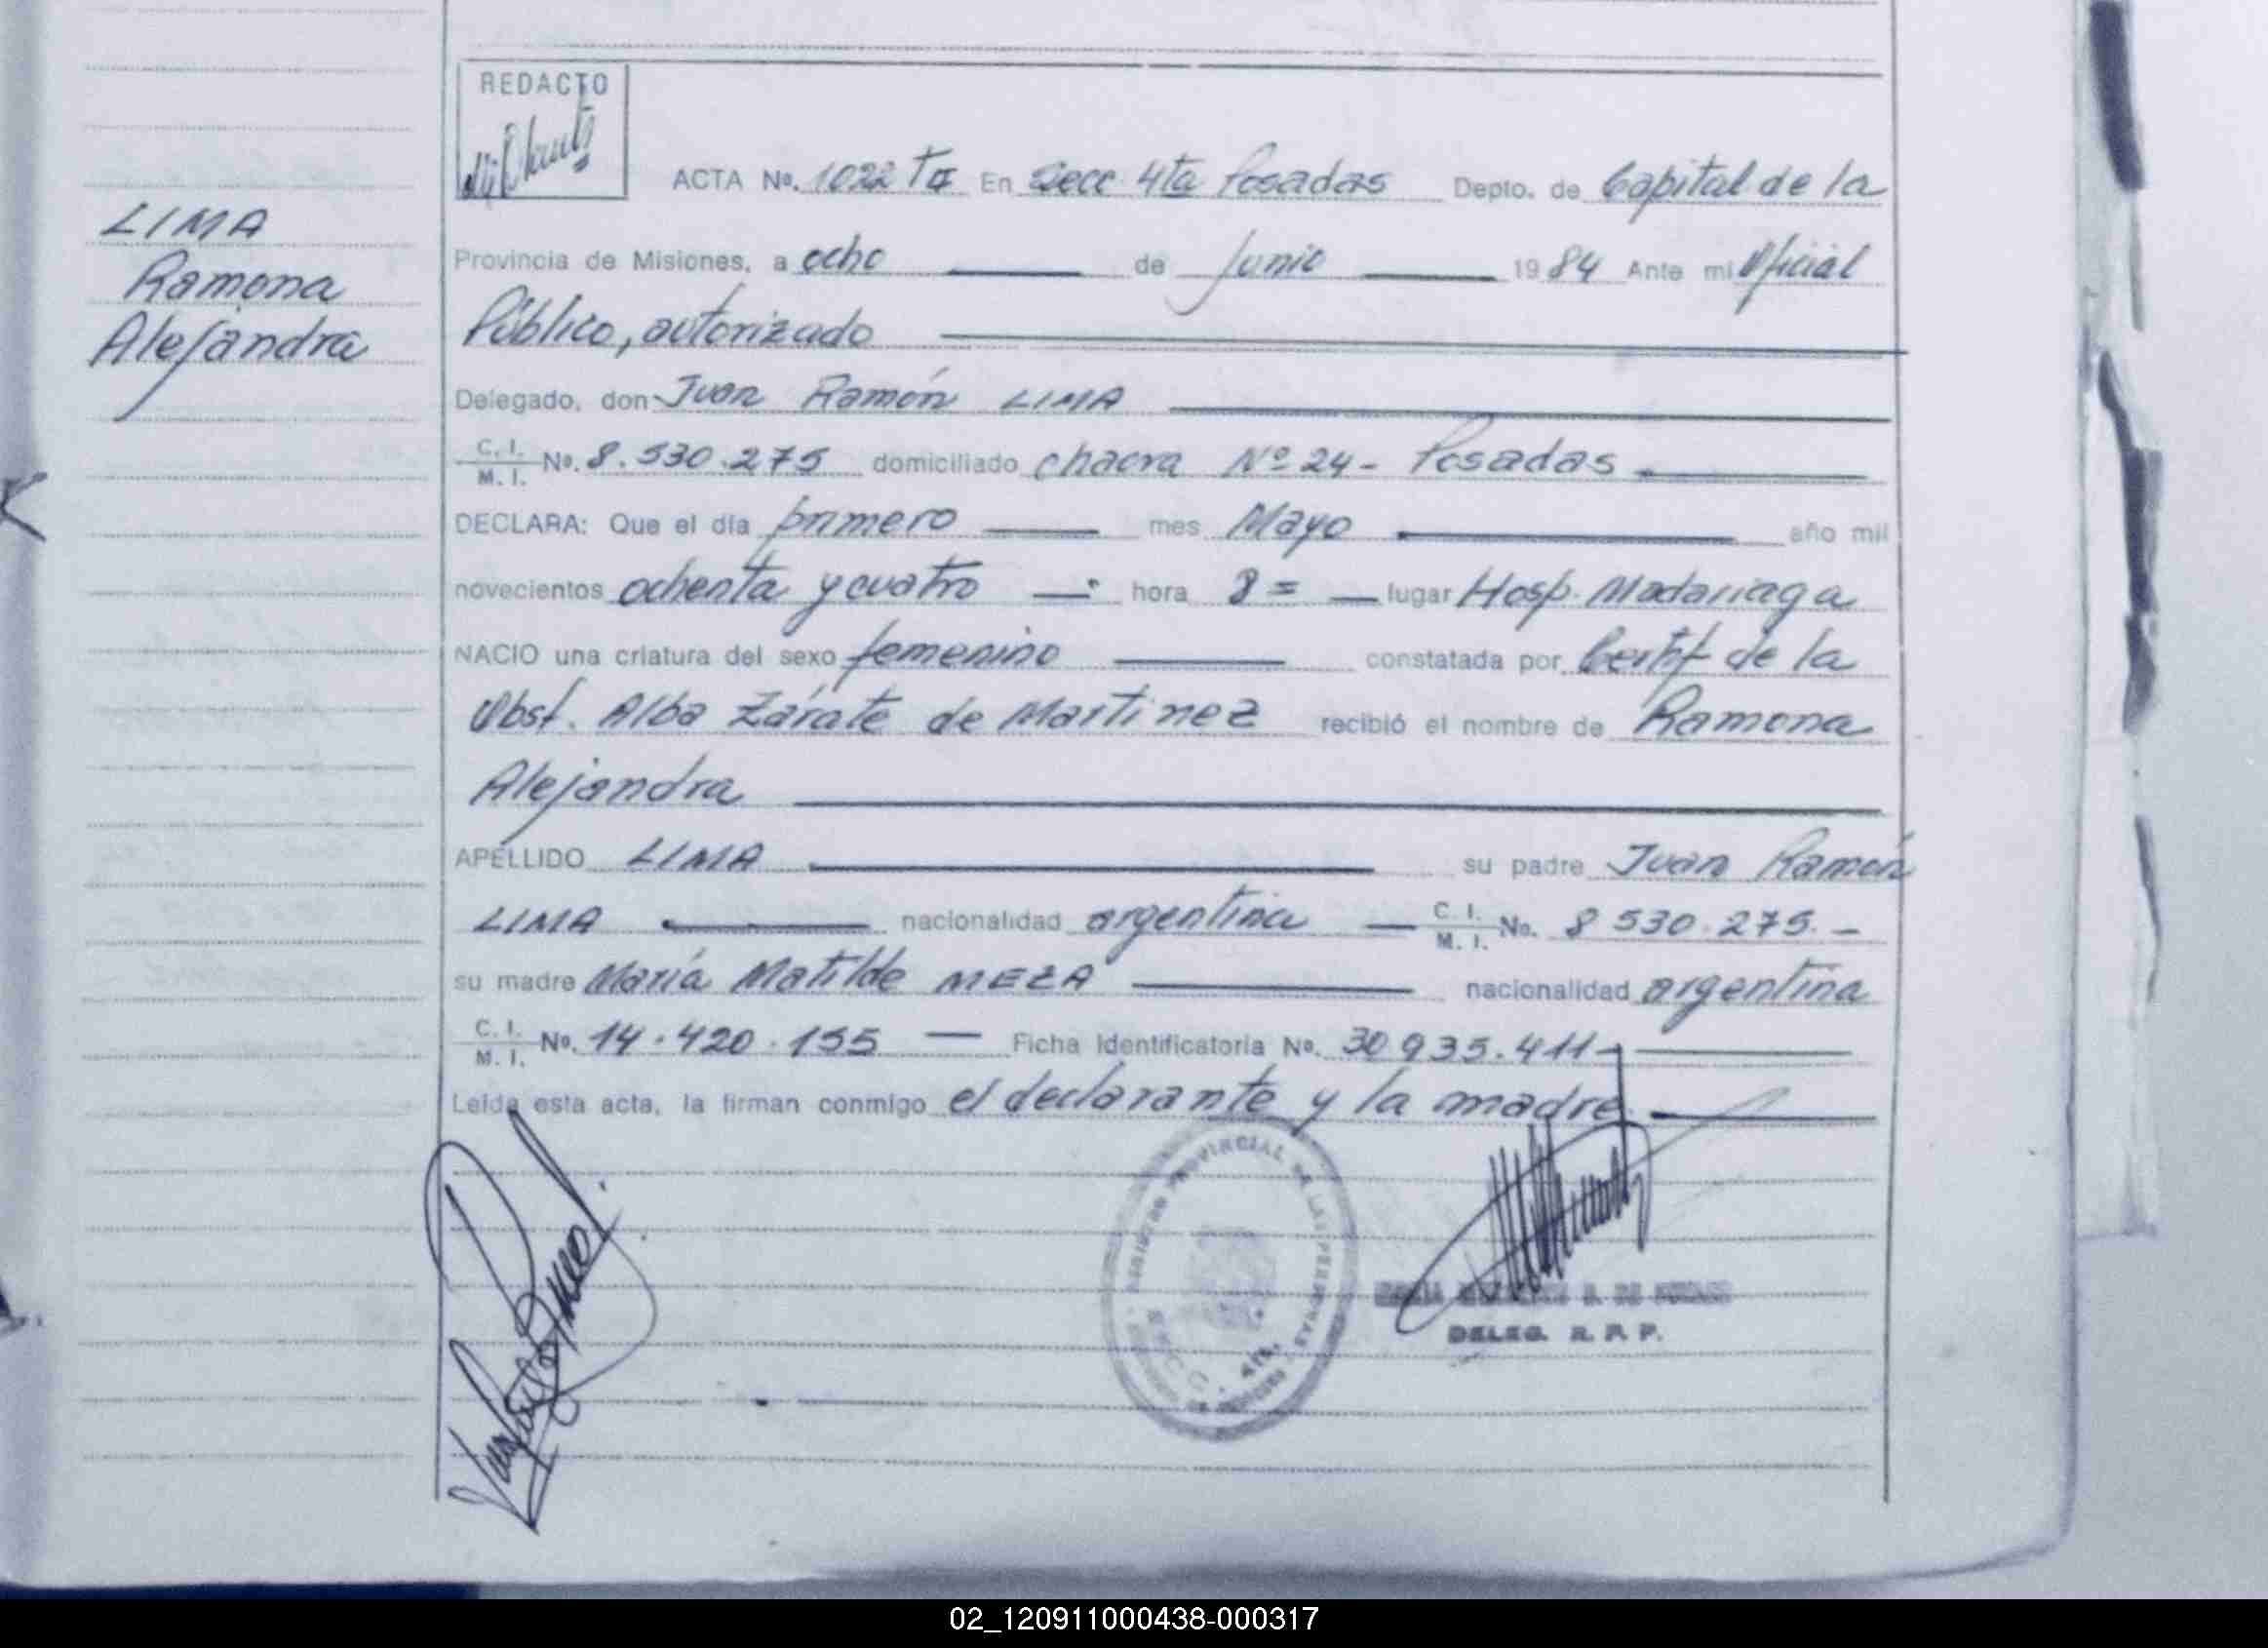 REDACTO
ACTA Nº. 1022 Tº II En Secc 4ta Posadas Depto. de Capital de la
LIMA
Ramona
Alejandra
Provincia de Misiones, a ocho de Junio 1984 Ante mi Oficial
Público, autorizado
Delegado, don Juan Ramón LIMA
C. I.
M. I. Nº. 8.530.275 domiciliado chacra Nº 24- Posadas
DECLARA: Que el día primero mes Mayo año mil
novecientos ochenta y cuatro hora 8= lugar Hosp. Madariaga
NACIO una criatura del sexo femenino constatada por Certif de la
Obst. Alba Zárate de Martinez recibió el nombre de Ramona
Alejandra
APELLIDO LIMA su padre Juan Ramón
LIMA nacionalidad argentina C. I.
M. I. No. 8 530.275.-
su madre María Matilde MEZA nacionalidad argentina
C. I.
M. I. Nº. 14.420.155 — Ficha Identificatoria Nº. 30 935.411-
Leída esta acta, la firman conmigo el declarante y la madre.
REGISTRO PROVINCIAL DE LAS PERSONAS
4ta.
DELEG. R. P. P.
02_120911000438-000317